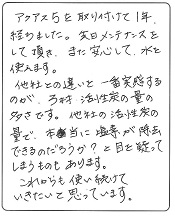 アクアス5を取り付けて1年、
経ちました。実日メンテナンスを
して頂き、また安心して、水を
使えます。
他社との違いを一番実感する
のが、ろ材、活性炭の量の
多さです。他社の活性炭の
量で、本当に塩素が除去
できるのだろうか?と目を疑って
しまうものもあります。
これからも使い続けて
いきたいと思っています。